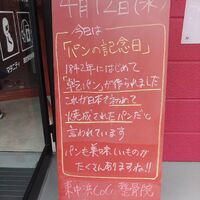 4月12日(水)
今日は
「パンの記念日」
1842年にはじめて
「乾パン」が作られました
これが日本で初めて
焼成されたパンだと
言われています
パンも美味しいものが
たくさんありますね!!
東中浜CoCo整骨院